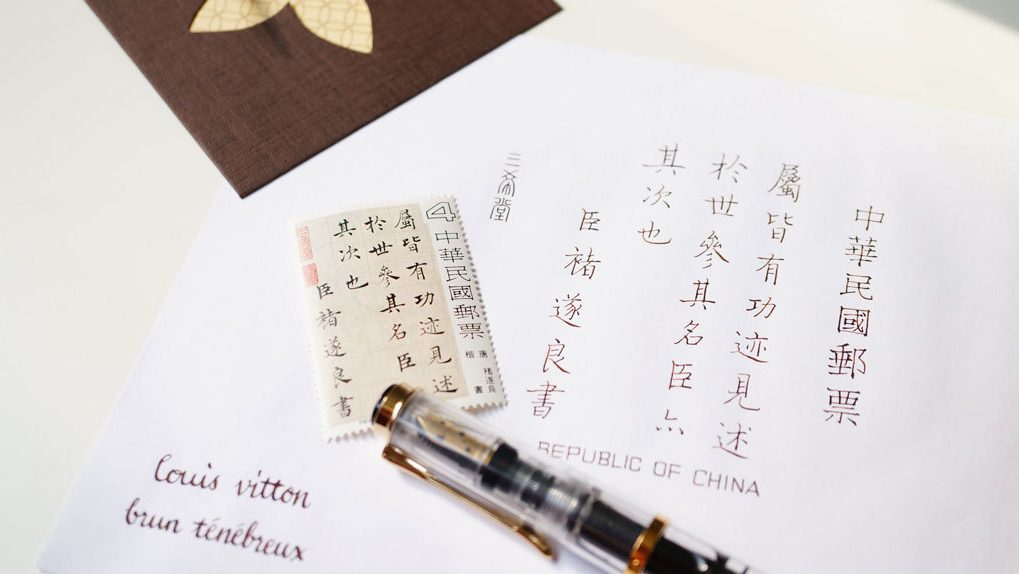 中華民國郵票
屬皆有功迹見述
於世參其名臣亦
其次也
臣褚遂良書
三希堂
REPUBLIC OF CHINA
4
中華民國郵票
唐 褚遂良
楷書
屬皆有功迹見述
於世參其名臣
其次也
臣褚遂良書
Louis vitton
brun ténébreux